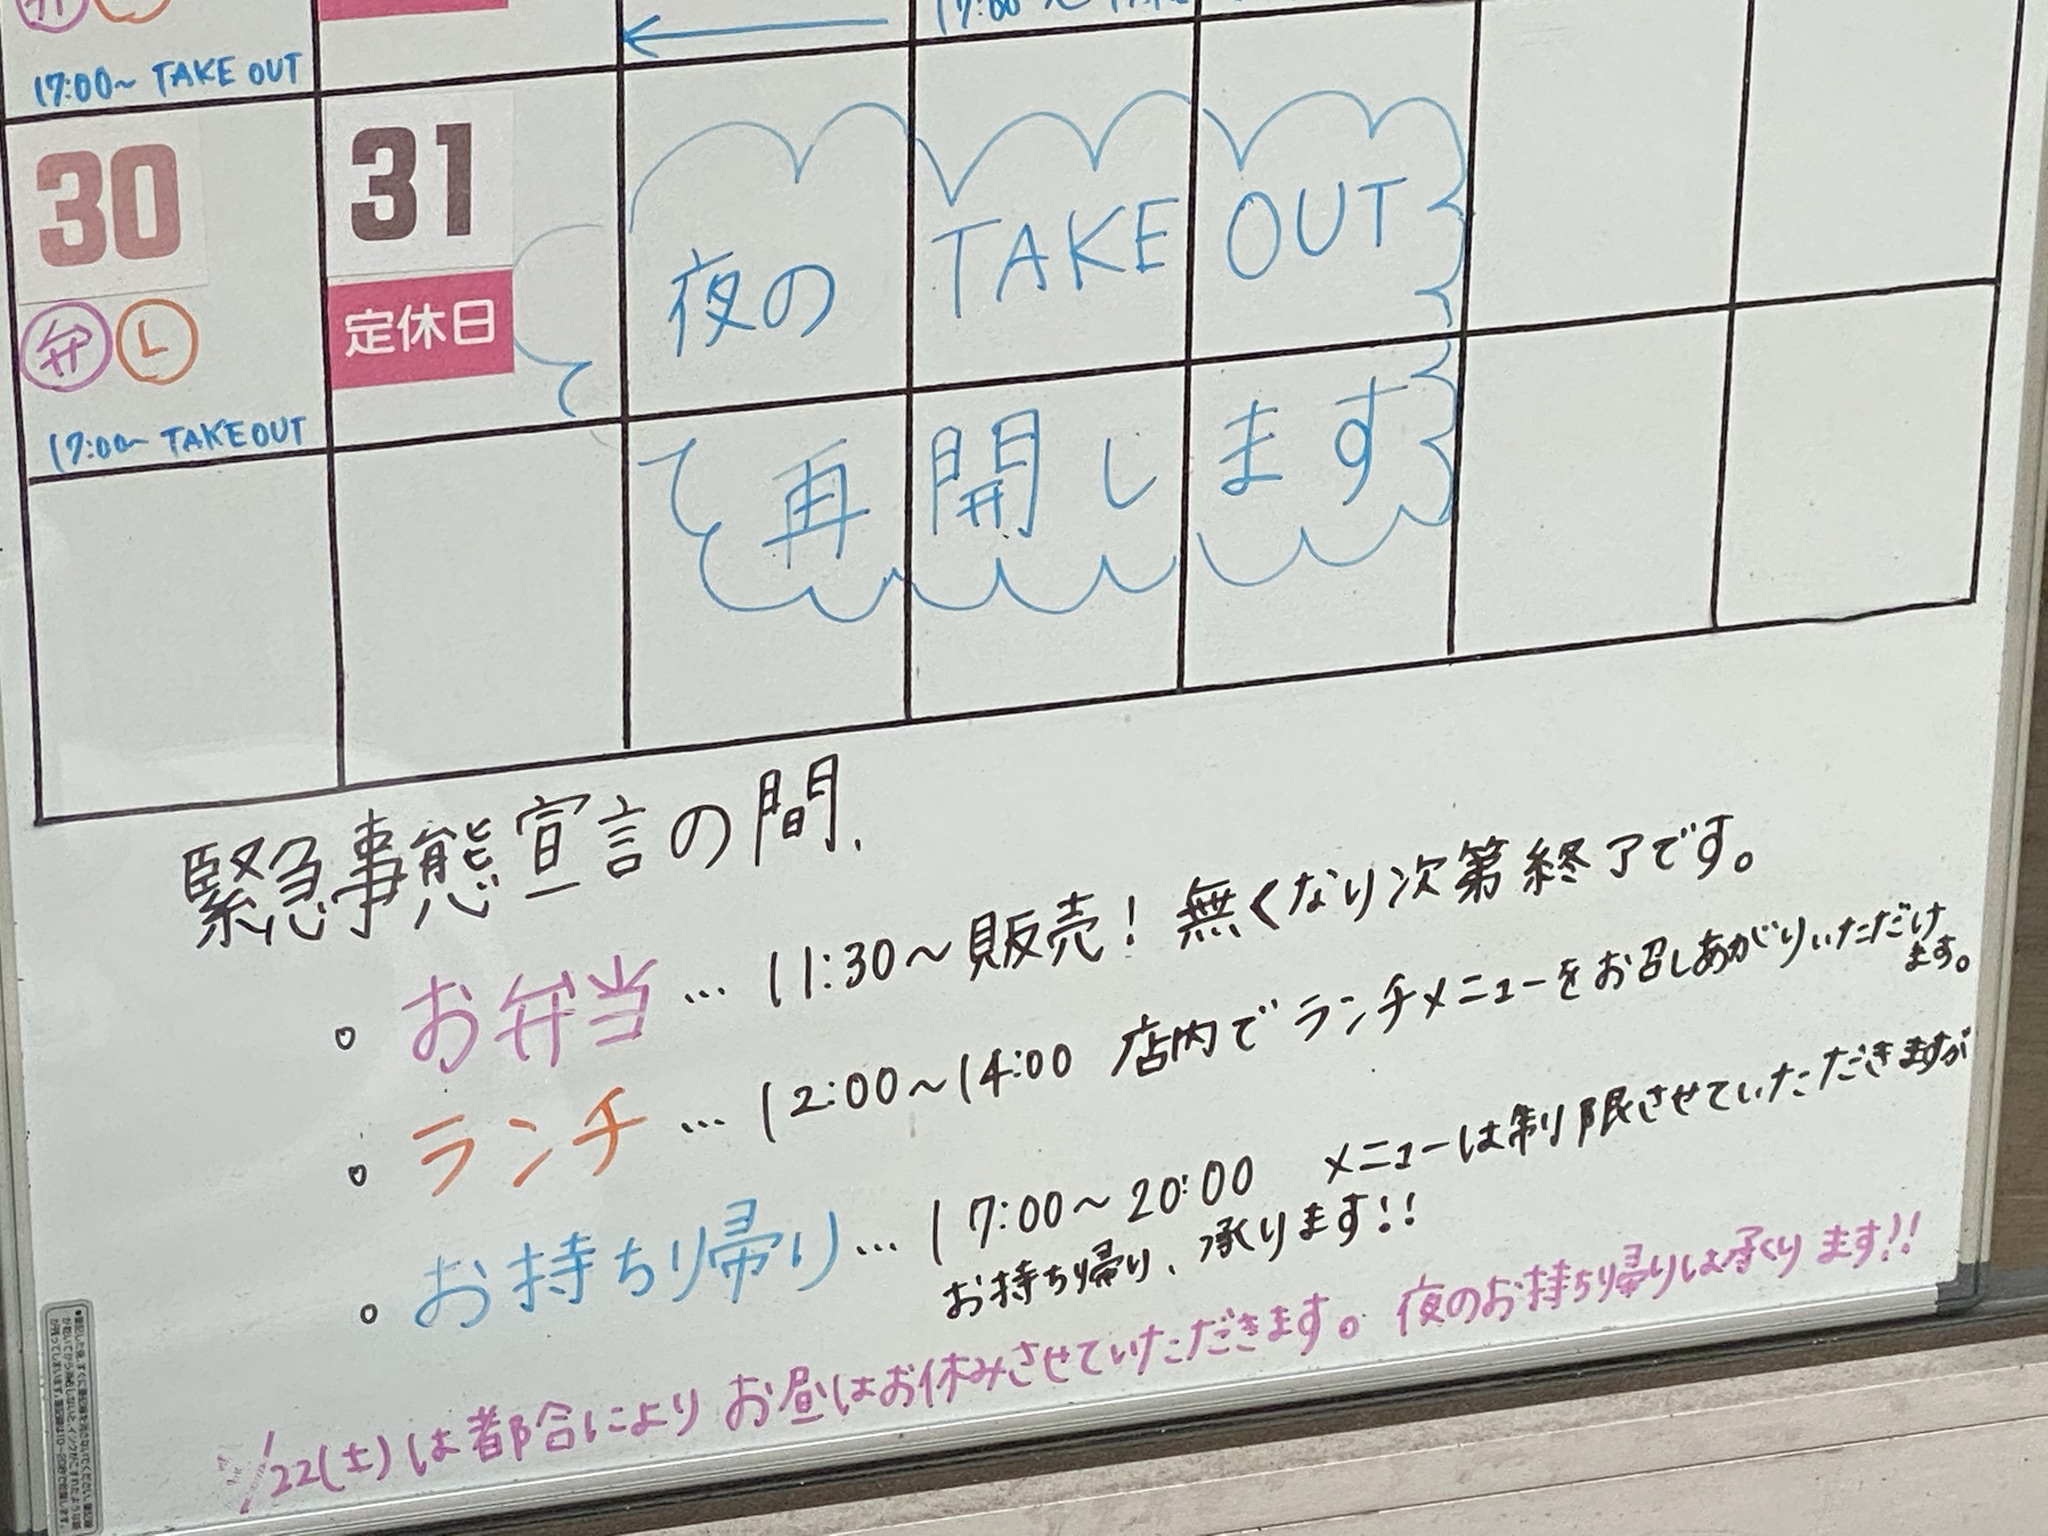 17:00~ TAKE OUT
30
31
弁 L
定休日
17:00~ TAKEOUT
夜の TAKE OUT
再開します
緊急事態宣言の間、
。お弁当… 11:30～販売! 無くなり次第終了です。
。ランチ… 12:00～14:00 店内でランチメニューをお召しあがりいただけ
ます。
。お持ち帰り… 17:00～20:00 メニューは制限させていただきますが
お持ち帰り、承ります!!
1/22(土)は都合により お昼はお休みさせていただきます。夜のお持ち帰りは承くります!!